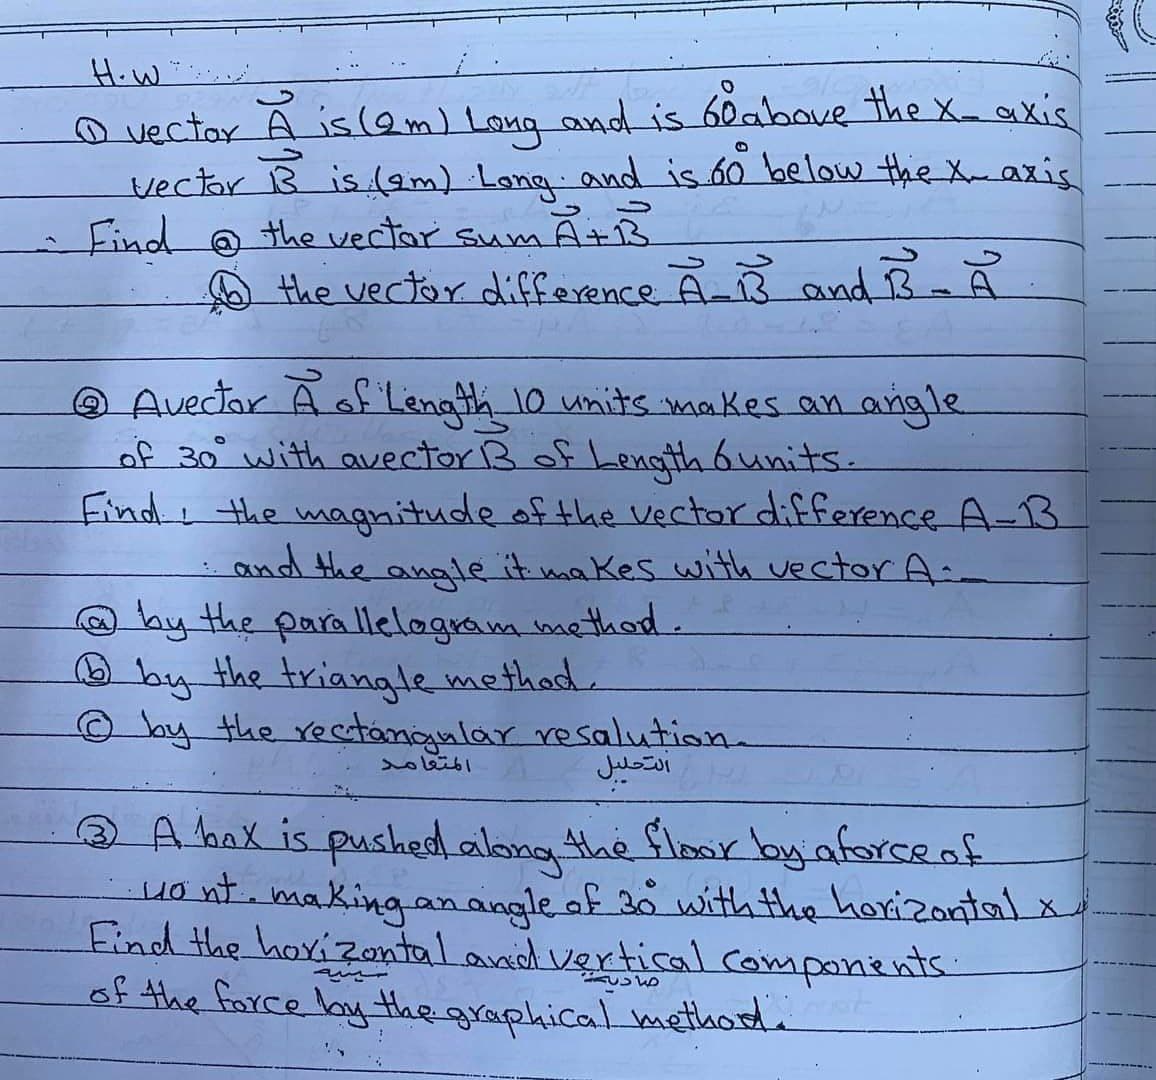 H.W
① vector A⃗ is (2m) Long and is 60° above the x-axis
vector B⃗ is (2m) Long and is 60° below the x-axis
Find ⓐ the vector sum A⃗+B⃗
ⓑ the vector difference A⃗-B⃗ and B⃗-A⃗
② A vector A⃗ of Length 10 units makes an angle
of 30° with a vector B⃗ of Length 6 units.
Find: the magnitude of the vector difference A-B
and the angle it makes with vector A:-
ⓐ by the parallelogram method.
ⓑ by the triangle method.
ⓒ by the rectangular resalution.
المتعامد التحليل
③ A box is pushed along the floor by a force of
40 nt. making an angle of 30° with the horizontal x
Find the horizontal and vertical components
of the force by the graphical method.